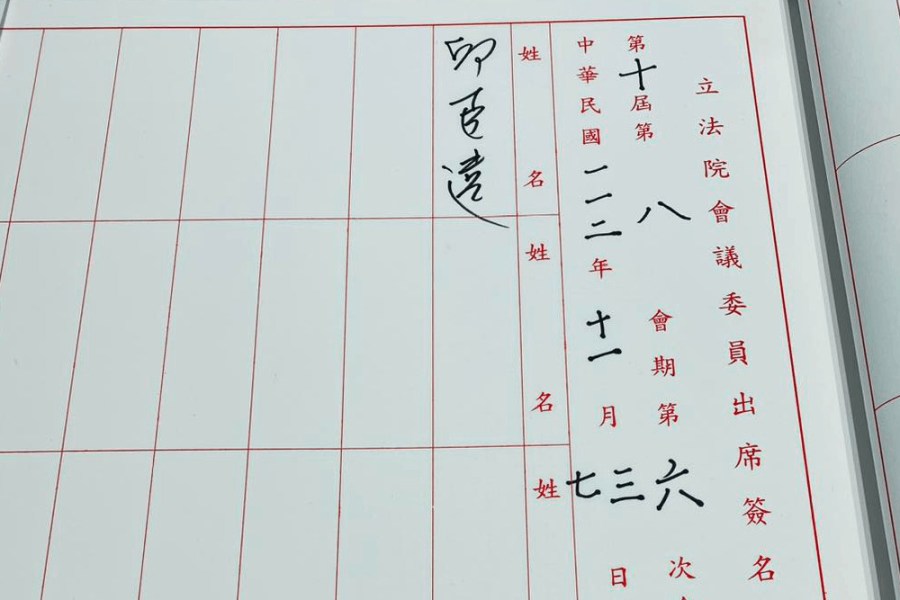 立法院會議委員出席簽名
第十屆第八會期第六次
中華民國一一二年十一月三七日
姓名
姓名
姓
邱臣遠